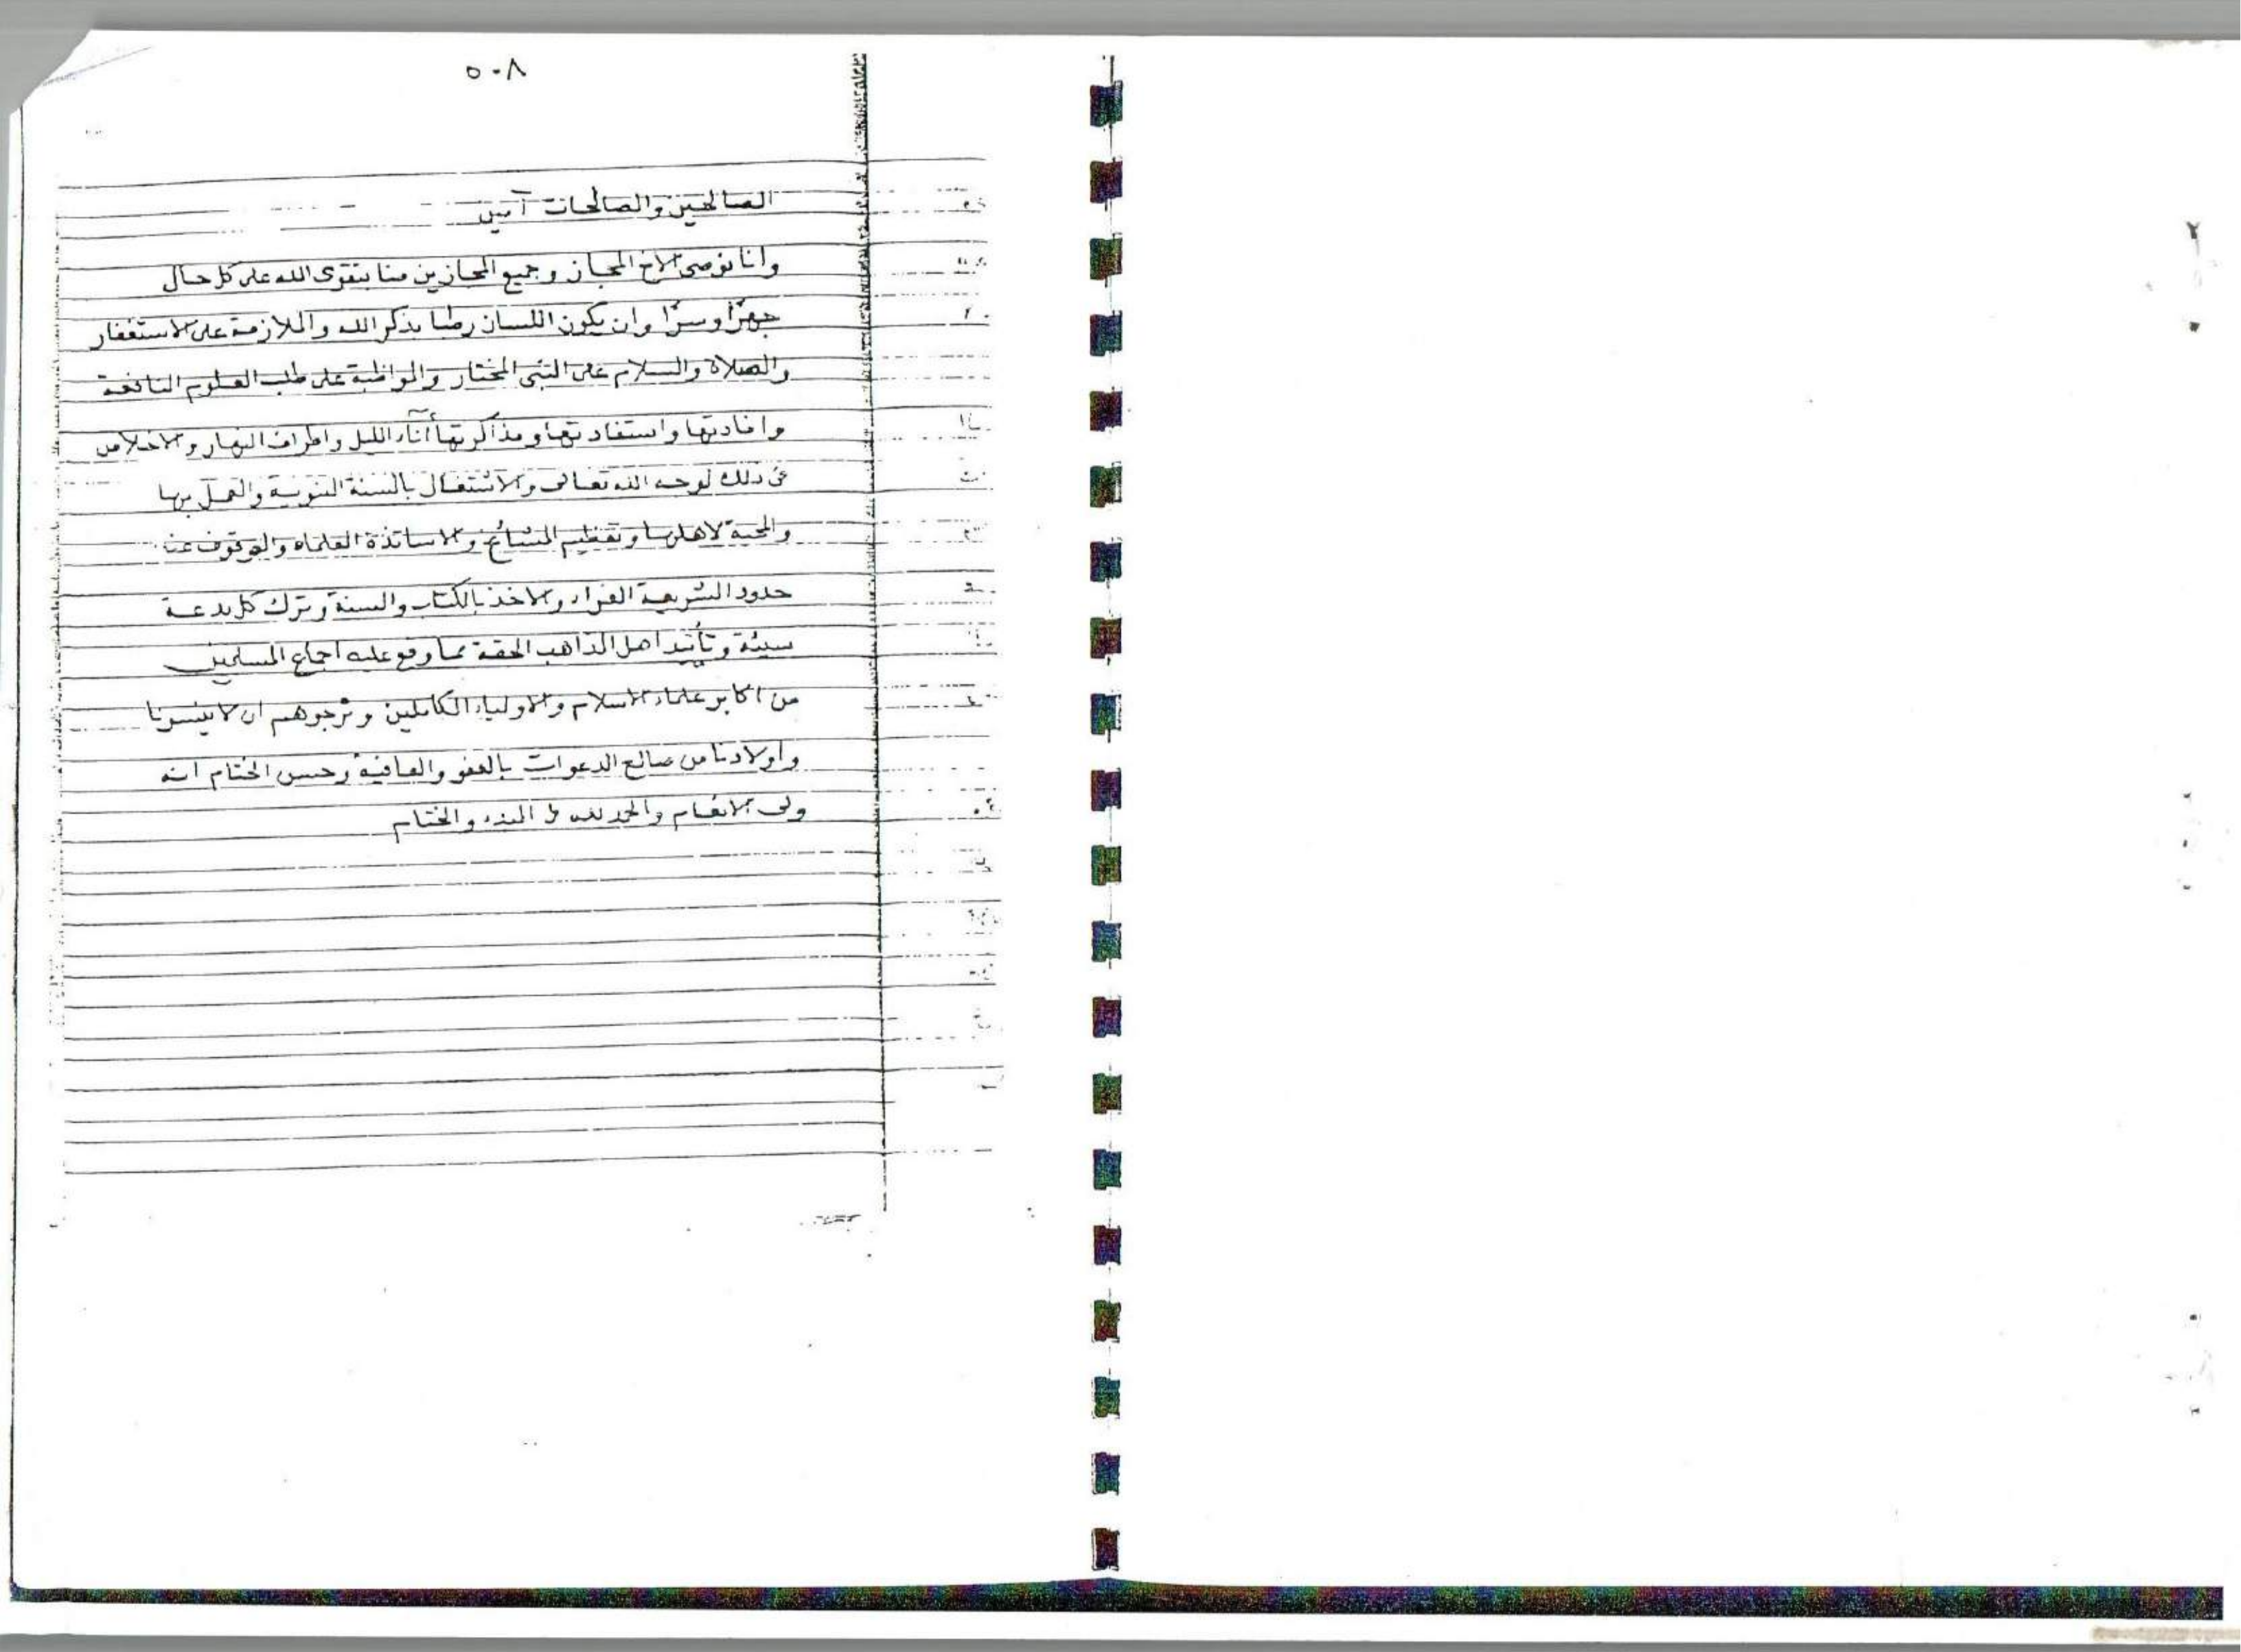 ٥٠٨
الصالحين والصالحات آمين
وانا نوصى الاخ المجاز وجميع المجازين منا بتقوى الله على كل حال
جهرًا وسرًا وان يكون اللسان رطبا بذكر الله والملازمة على الاستغفار
والصلاة والسلام على النبى المختار والمواظبة على طلب العلوم النافعة
وافادتها واستفادتها ومذاكرتها أناء الليل واطراف النهار والاخلاص
فى ذلك لوجه الله تعالى والاشتغال بالسنة النبوية والعمل بها
والمحبة لاهلها وتعظيم المشائخ والاساتذة العلماء والوقوف عند
حدود الشريعة الغراء والاخذ بالكتاب والسنة وترك كل بدعة
سيئة وتأييد اهل المذاهب الحقة مما وقع عليه اجماع المسلمين
من اكابر علماء الاسلام والاولياء الكاملين ونرجوهم ان لا ينسونا
وأولادنا من صالح الدعوات بالعفو والعافية وحسن الختام انه
ولى الانعام والحمد لله فى البدء والختام